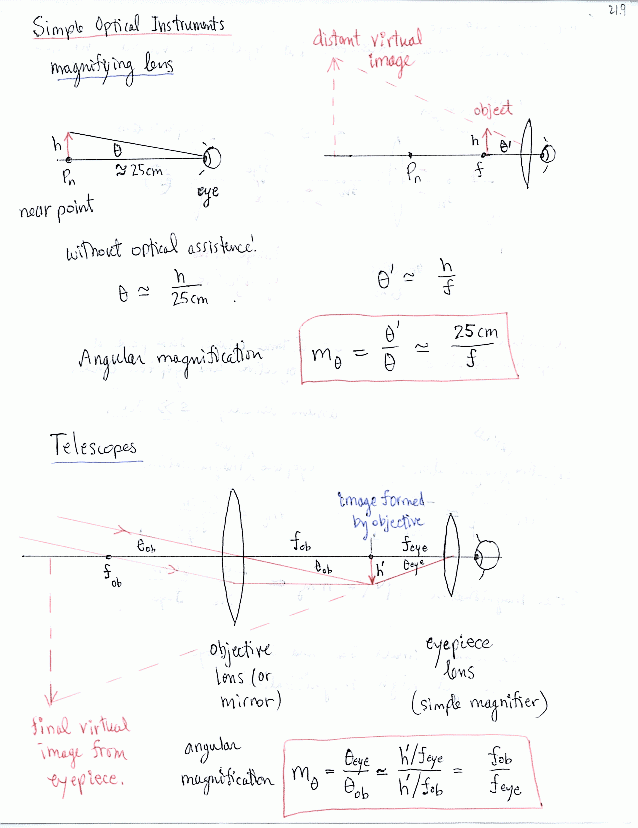 21.9
Simple Optical Instruments
magnifying lens
distant virtual
image
object
h
θ
≈ 25cm
Pn
near point
eye
h
θ'
Pn
f
without optical assistence:
θ ≃ h / 25cm .
θ' ≃ h / f
Angular magnification
mθ = θ' / θ ≃ 25cm / f
Telescopes
image formed
by objective
θob
fob
feye
fob
θob
h'
θeye
objective
lens (or
mirror)
eyepiece
lens
(simple magnifier)
final virtual
image from
eyepiece.
angular
magnification
mθ = θeye / θob ≃ h'/feye / h'/fob = fob / feye